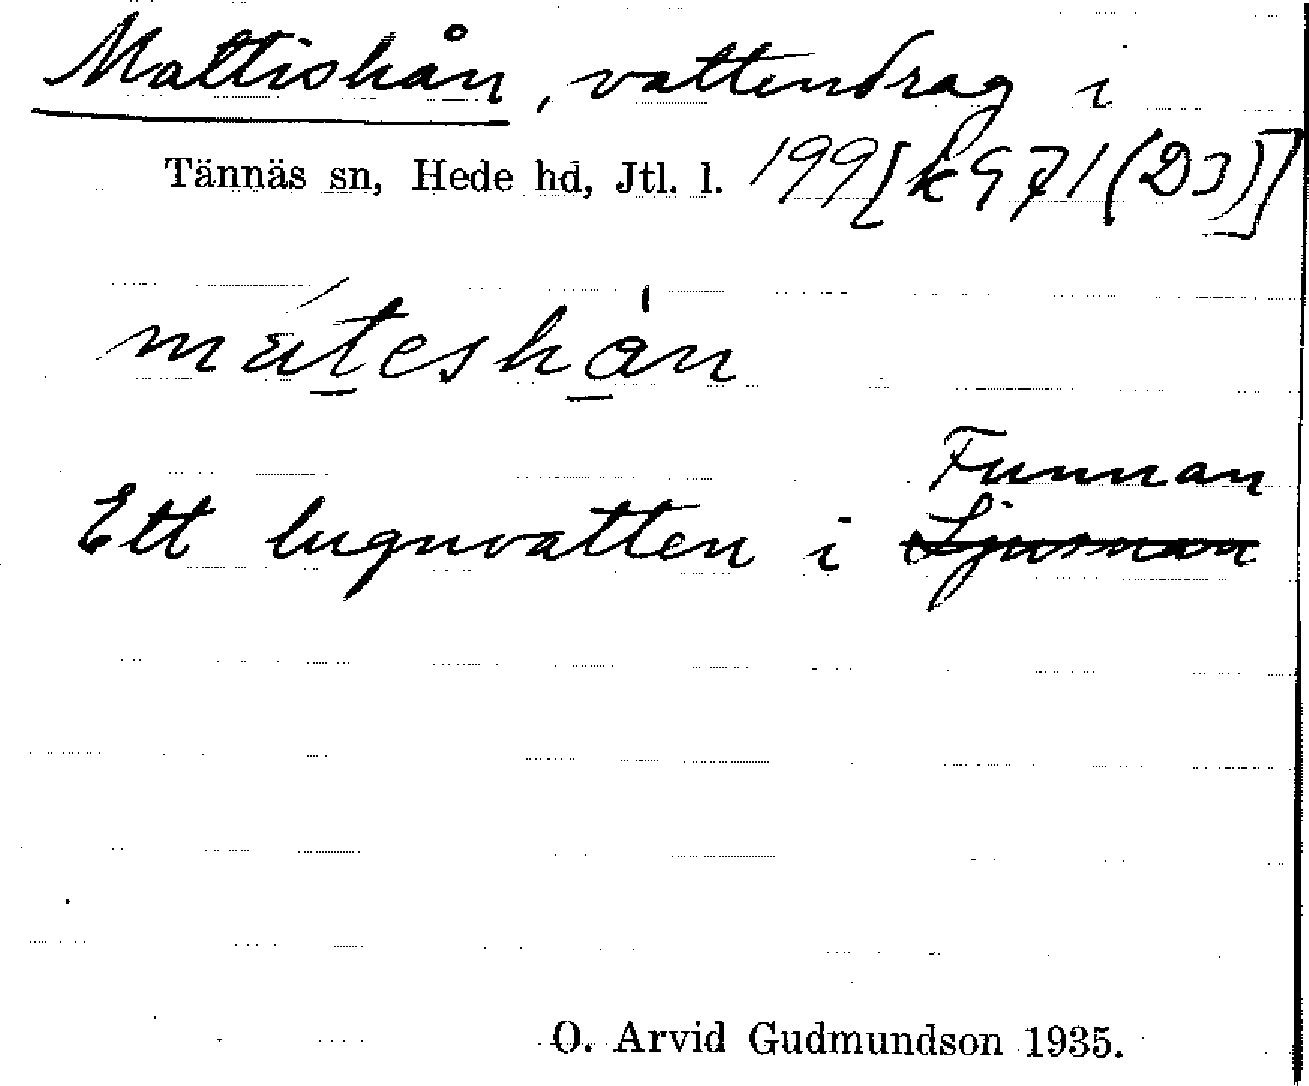 Mattishån, vattendrag i
Tännäs sn, Hede hd, Jtl. l. 199[k971(D3)]
máteshån
Funnan
Ett lugnvatten i Ljusnan
O. Arvid Gudmundson 1935.